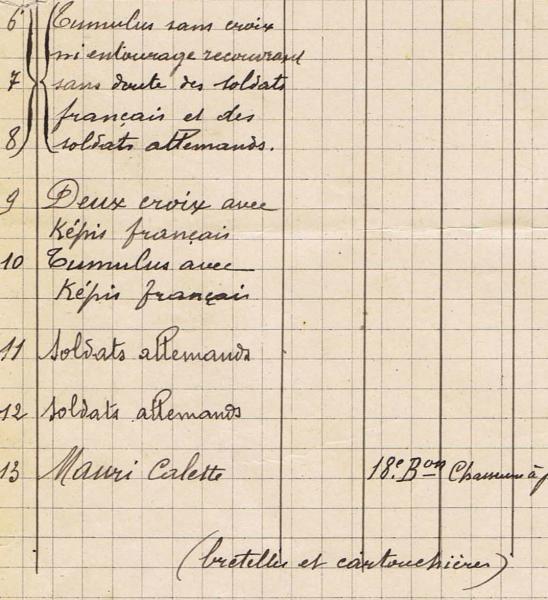 6 Tumulus sans croix
ni entourage recouvrant
7 sans doute des soldats
français et des
8 soldats allemands.
9 Deux croix avec
Képis français
10 Tumulus avec
Képis français
11 Soldats allemands
12 Soldats allemands
13 Mauri Calette 18e. Bon à
(bretelles et cartouchières)